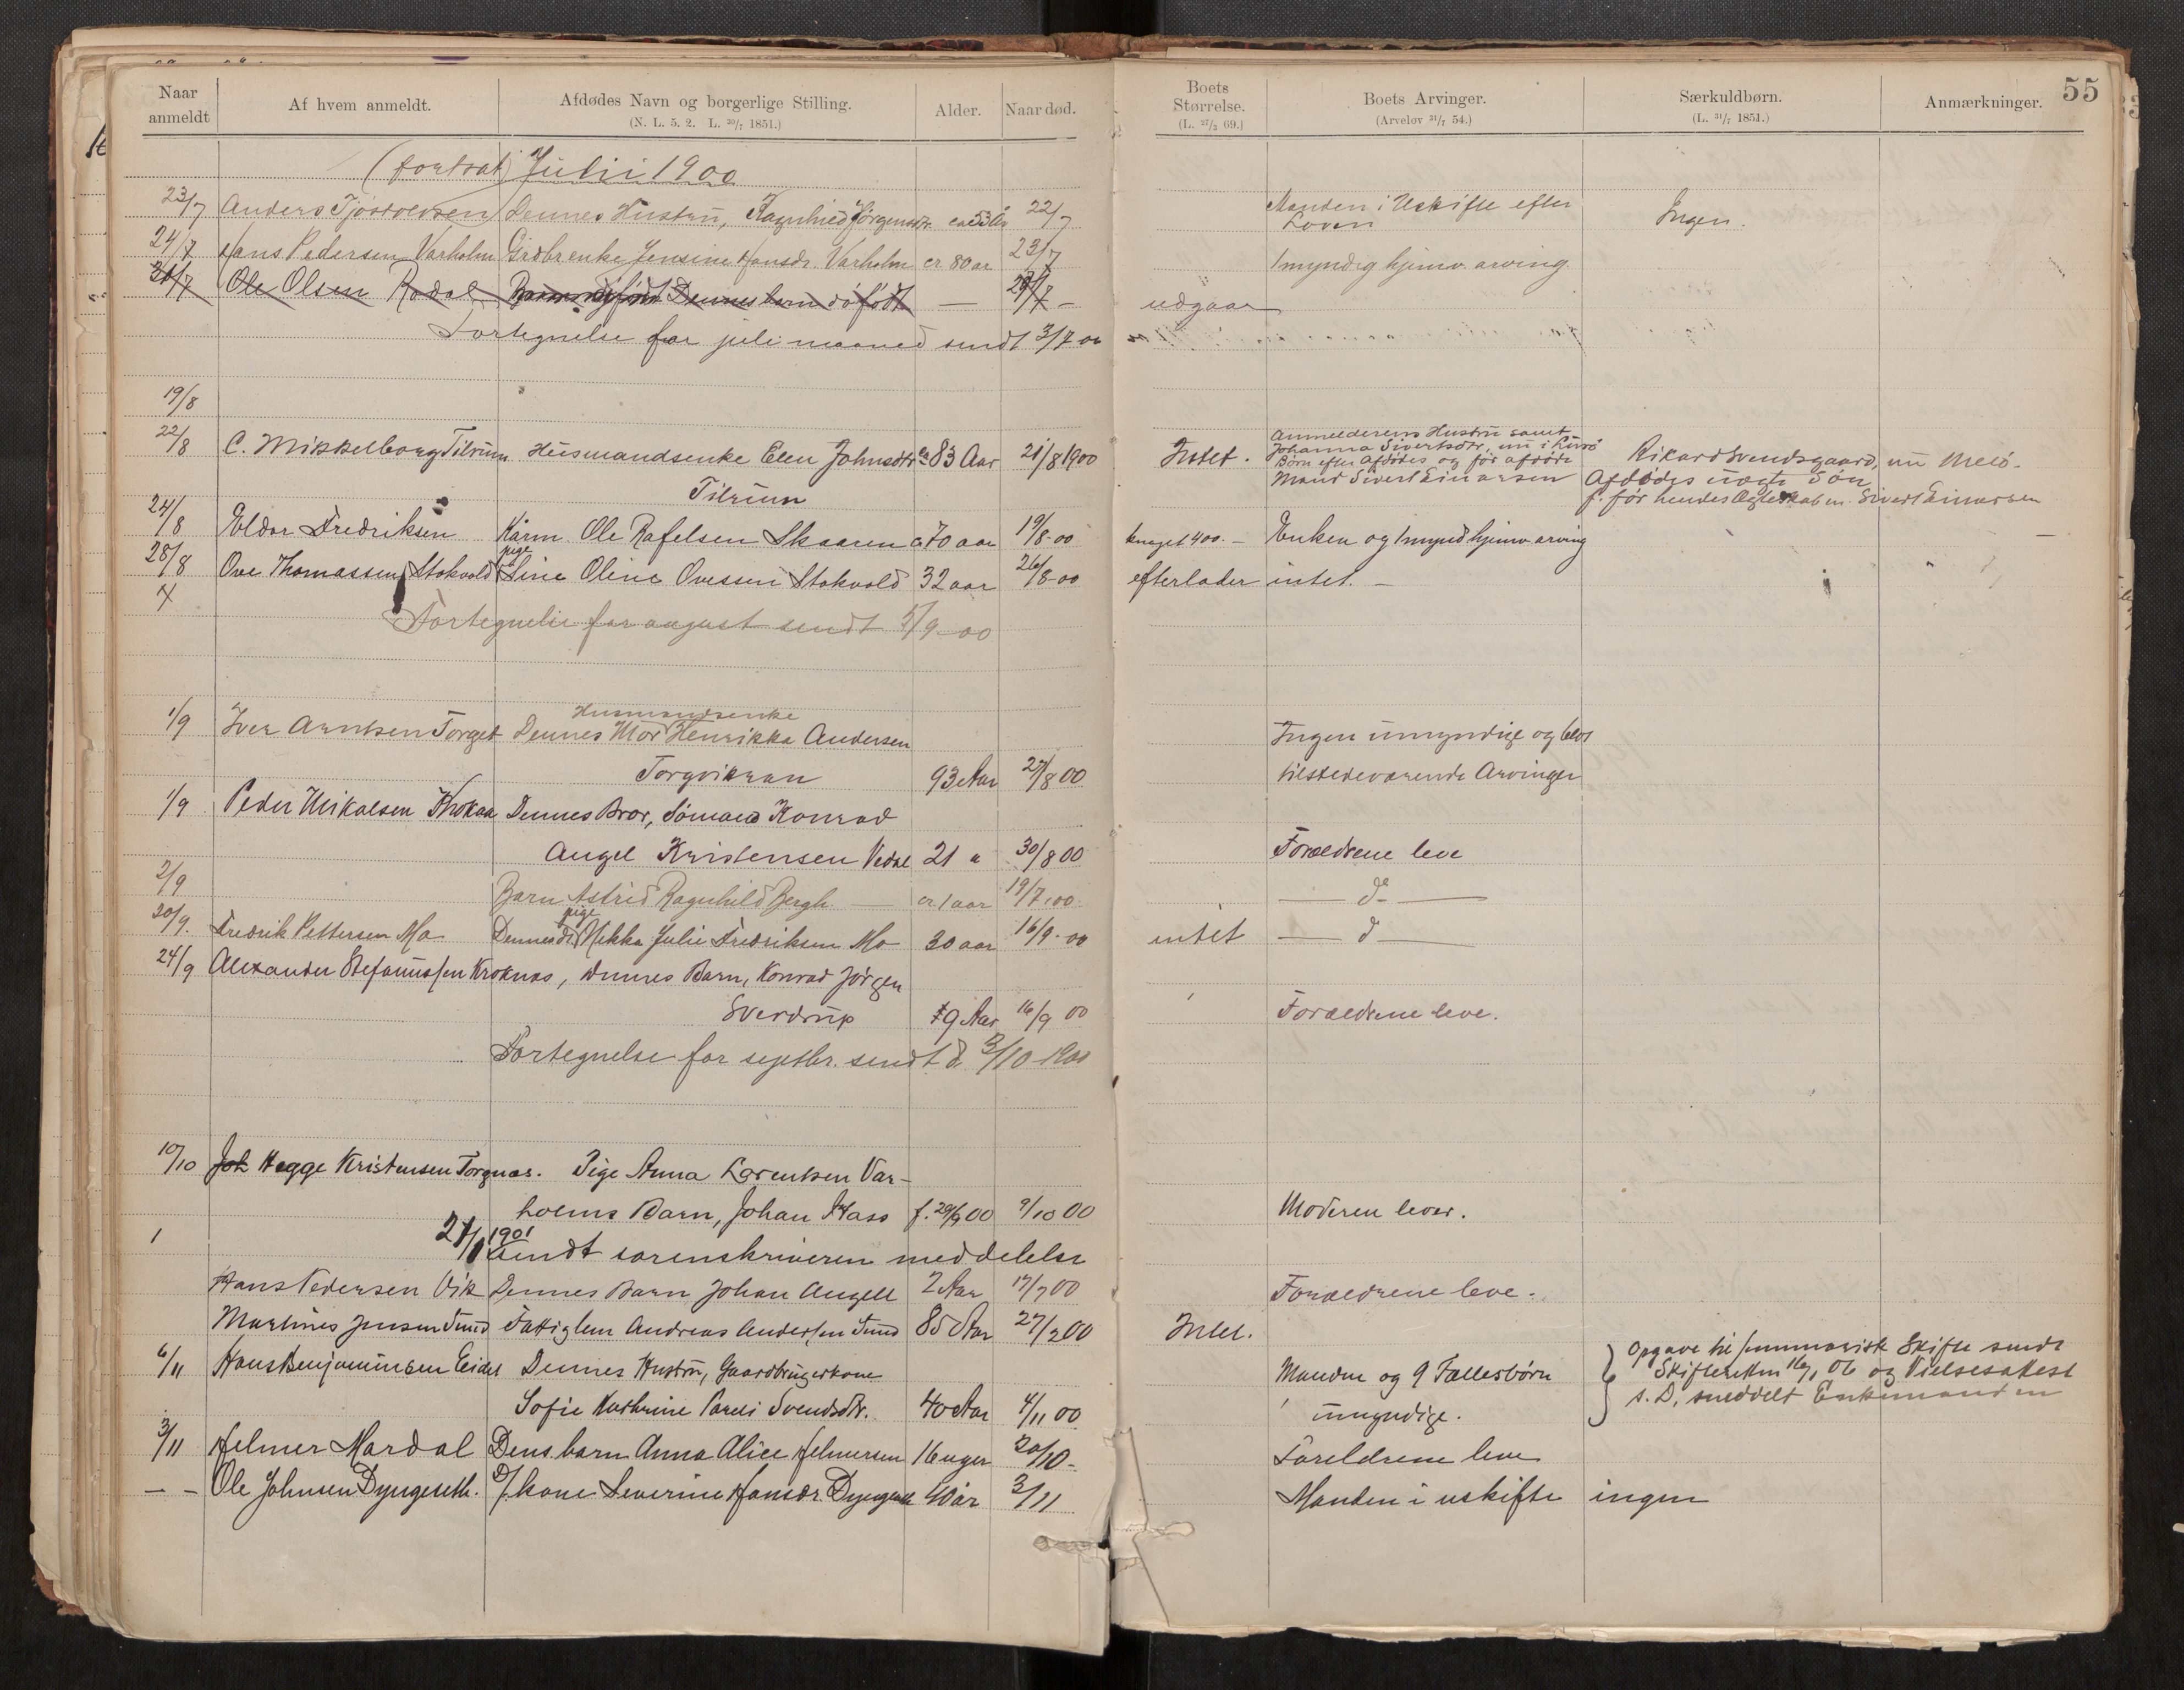 Naar anmeldt
Af hvem anmeldt.
Afdødes Navn og borgerlige Stilling.
(N. L. 5. 2. L. 30/7 1851.)
Alder.
Naar død.
Boets Størrelse.
(L. 27/3 69.)
Boets Arvinger.
(Arvelov 31/7 54.)
Særkuldbørn.
(L. 31/7 1851.)
Anmærkninger.
55
(fortsat) Juli i 1900
23/7 Anders Tjostolvsen Dennes Hustru, Ragnhild Jörgensdtr. ca 53 År 22/7 Manden i Uskifte efter Loven Ingen.
24/7 Hans Pedersen Varholm Grdbrenke Jensine Hansdr. Varholm cr 80 ar 23/7 1 myndig hjemv. arving
30/7 Ole Olsen Rødal Dennes barn döfödt — 29/7 — udgaar
Fortegnelse for juli maaned sendt 3/7 00
19/8
22/8 C. Mikkelborg Tilrum Husmandsenke Elen Johnsdtr ca 83 Aar 21/8 1900 Intet. Anmelderens Hustru samt
Johanna Sivertsdtr, nu i
Börn efter Afdödes og för afdöde
Mand Sivert Einarsen
Rikard Svendsgaard, nu Melö.
Afdödes uægte Sön
f. för hendes Ægteskab m. Sivert Einarsen
Tilrum
24/8 Eldor Fredriksen Kårm. Ole Rafelsen Skaaren ca 70 aar 19/8 00 knapt 400.— Enken og 1 mynd hjemv arving —
28/8 Ove Thomassen Stokvold pige Line Oline Ovessen Stokvold 32 aar 26/8 00 efterlader intet. —
Fortegnelse for august sendt 5/9 - 00
Husmandsenke
1/9 Iver Arntsen Torget Dennes Mor Henrikka Andersen Ingen umyndige og blot
Torgvikran 93 Aar 27/8 00 tilstedeværende Arvinger
1/9 Peder Mikalsen Krokaa Dennes Bror, Sömand Konrad
Angel Kristensen Vedal 21 " 30/8 00 Foræeldrene leve
2/9 Barn Astrid Ragnhild Bergh — cr 1 aar 19/7 00 — do —
20/9. Fredrik Pettersen Mo Dennes dtr pige Hekka Julie Fredriksen Mo 30 aar 16/9 - 00 intet — d —
24/9 Alexander Stefanussen Kroknæs, Dennes Barn, Konrad Jörgen
Sverdrup 9 Aar 16/9 00 Forældrene leve.
Fortegnelse for septbr. sendt d 3/10 - 1900
10/10 Joh Hegge Kristensen Torgnæs. Pige Anna Lorentsen Var-
holms Barn, Johan Hass f. 29/9 00 9/10 00 Moderen lever.
21/1 1901 sendt sorenskriveren meddelelse
Hans Pedersen Vik Dennes Barn Johan Angell 2 Aar 17/7 00 Forældrene leve.
Martines Jensen Sund Fattiglem Andreas Andersen Sund 85 Aar 27/7 00 Intet.
6/11 Hans Benjaminsen Eidet Dennes Hustru, Gaardbrugerkone Manden og 9 Fællesbörn
Sofie Kathrine Pareli Svendsdtr. 40 Aar 4/11 00 umyndige.
Opgave til summarisk Skifte sendt
Skifteretten 16/1 06 og Vielsesattest
s. D. meddelt Enkemanden
3/11 Helmer Mardal Dens barn Anna Alice Helmersen 16 uger 20/10 - Foreldrene leve
— — Ole Johnsen Dyngeseth. D/ kone Severine Hansdr. Dyngeseth 40 år 3/11 Manden i uskifte ingen